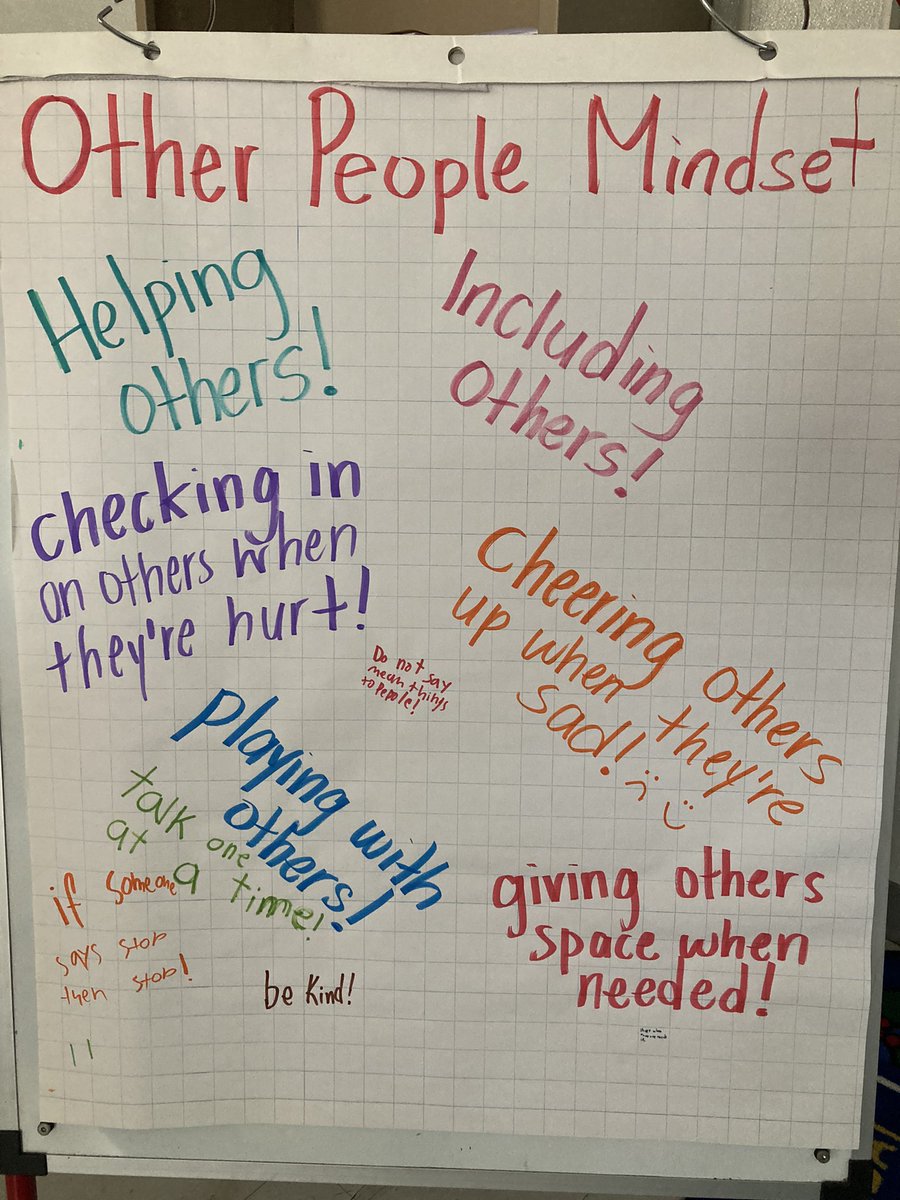 Other People Mindset
Helping
others!
Including
Others!
checking in
on others when
they're hurt!
Cheering others
up when they're
sad!
Do not say
mean things
to People!
Playing with
others!
talk one
at a time!
if someone
says stop
then stop!
be Kind!
giving others
space when
needed!